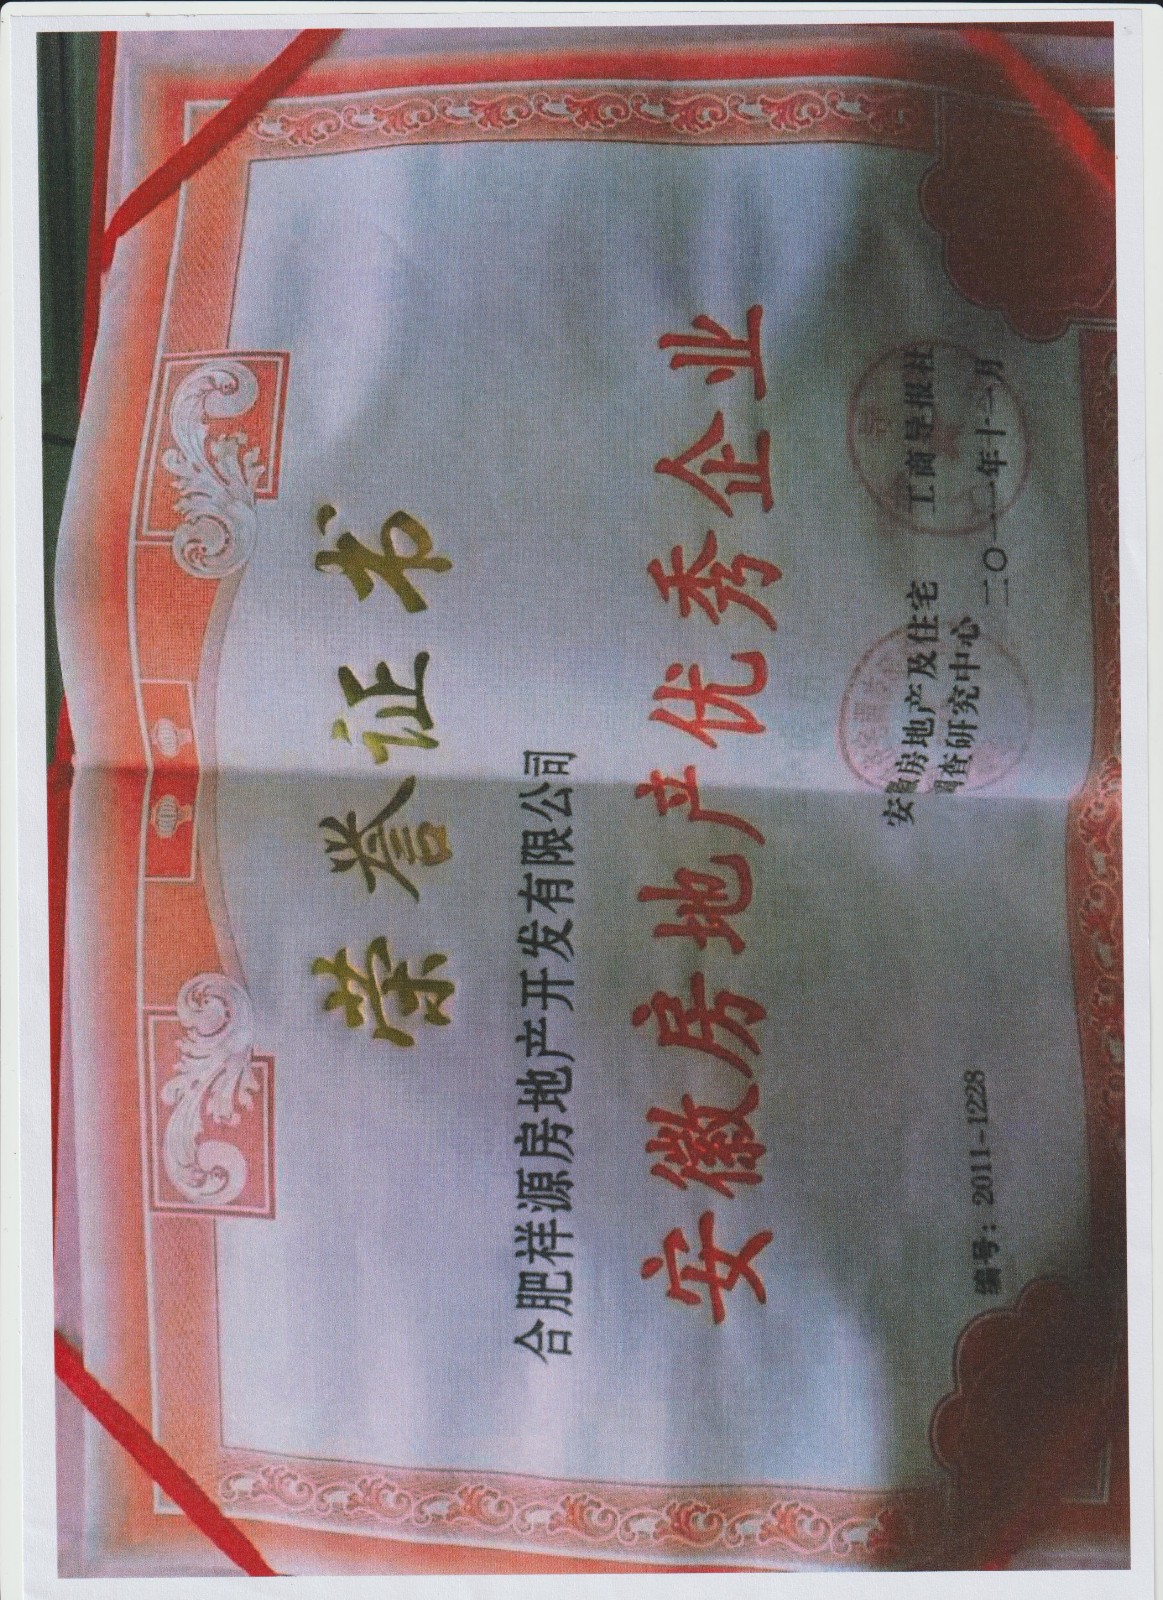 荣誉证书
合肥祥源房地产开发有限公司
安徽房地产优秀企业
编号：2011-1228
安徽房地产及住宅
调查研究中心
工商导报社
二〇一一年十二月